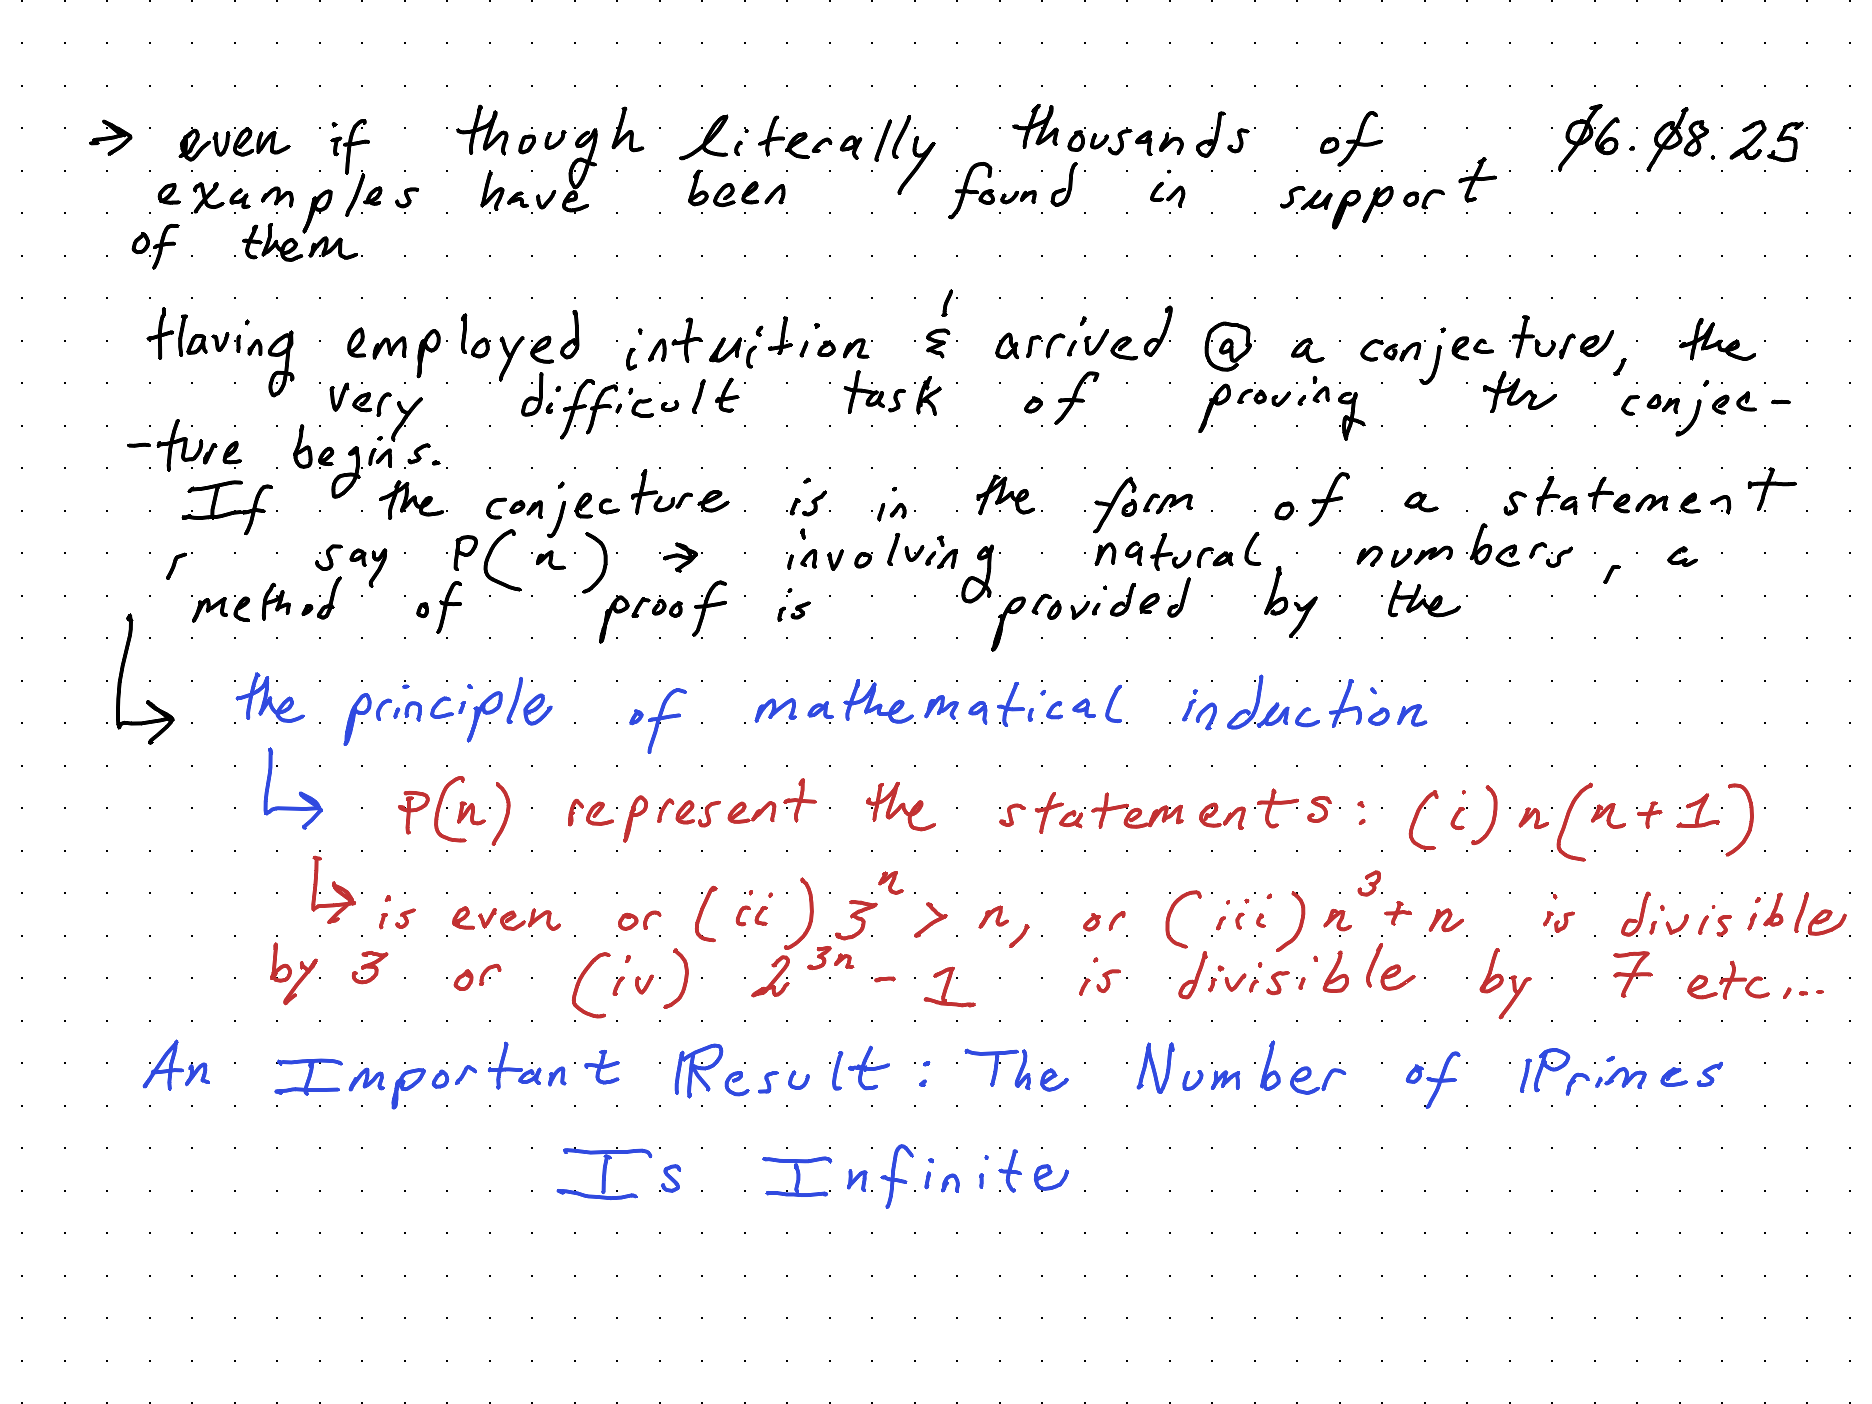 → even if though literally thousands of Ø6.Ø8.25
examples have been found in support
of them
Having employed intuition & arrived @ a conjecture, the
very difficult task of proving the conjec-
-ture begins.
If the conjecture is in the form of a statement
, say P(n) → involving natural numbers, a
method of proof is provided by the
↳ the principle of mathematical induction
↳ P(n) represent the statements: (i) n(n+1)
↳ is even or (ii) 3ⁿ > n, or (iii) n³+n is divisible
by 3 or (iv) 2³ⁿ - 1 is divisible by 7 etc...
An Important Result: The Number of Primes
Is Infinite